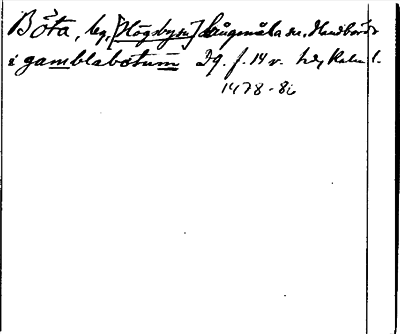 Böta, by, [Högsby sn] Långmåla sn, Handbörds
i gamblabotum D9. f. 14 v. Kalm l.
1478-86